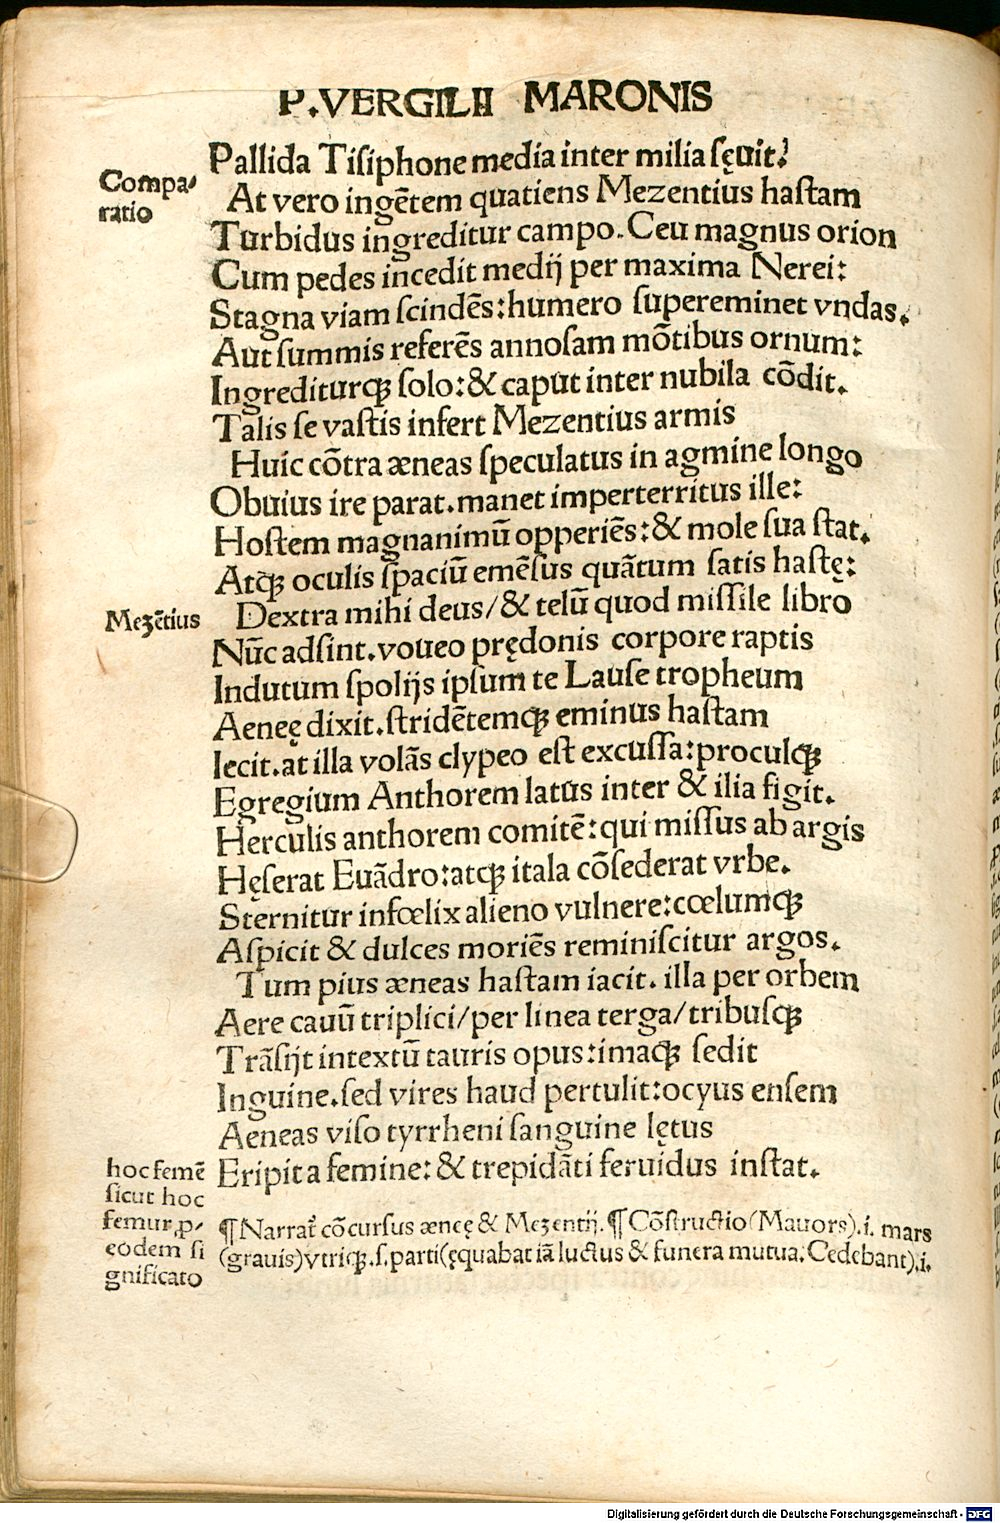 P.VERGILII MARONIS
Pallida Tisiphone media inter milia sęuit.
Compa-
ratio
At vero ingẽtem quatiens Mezentius hastam
Turbidus ingreditur campo. Ceu magnus orion
Cum pedes incedit medij per maxima Nerei:
Stagna viam scindẽs: humero supereminet vndas.
Aut summis referẽs annosam mõtibus ornum:
Ingrediturqꝫ solo: & caput inter nubila cõdit.
Talis se vastis infert Mezentius armis
Huic cõtra æneas speculatus in agmine longo
Obuius ire parat. manet imperterritus ille:
Hostem magnanimũ opperiẽs: & mole sua stat.
Atqꝫ oculis spaciũ emẽsus quãtum satis hastę:
Mezẽtius
Dextra mihi deus/ & telũ quod missile libro
Nũc adsint. voueo prędonis corpore raptis
Indutum spolijs ipsum te Lause tropheum
Aeneę dixit. stridẽtemqꝫ eminus hastam
Iecit. at illa volãs clypeo est excussa: proculqꝫ
Egregium Anthorem latus inter & ilia figit.
Herculis anthorem comitẽ: qui missus ab argis
Hęserat Euãdro: atqꝫ itala cõsederat vrbe.
Sternitur infœlix alieno vulnere: cœlumqꝫ
Aspicit & dulces moriẽs reminiscitur argos.
Tum pius æneas hastam iacit. illa per orbem
Aere cauũ triplici/ per linea terga/ tribusqꝫ
Trãsijt intextũ tauris opus: imaqꝫ sedit
Inguine. sed vires haud pertulit: ocyus ensem
Aeneas viso tyrrheni sanguine lętus
Eripit a femine: & trepidãti feruidus instat.
hoc femẽ
sicut hoc
femur, ꝓ
eodem si
gnificato
¶ Narrat᷑ cõcursus æneę & Mezentij. ¶ Cõstructio (Mauors).i. mars
(grauis) vtriqꝫ .s. parti (ęquabat iã luctus & funera mutua. Cedebant).i.
Digitalisierung gefördert durch die Deutsche Forschungsgemeinschaft - DFG